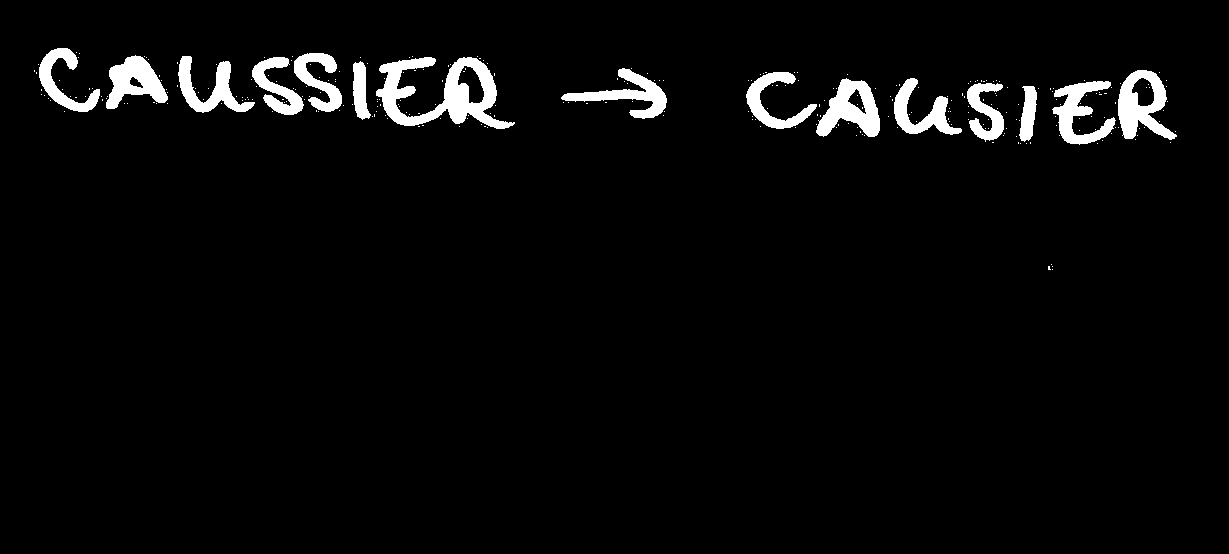 CAUSSIER → CAUSIER